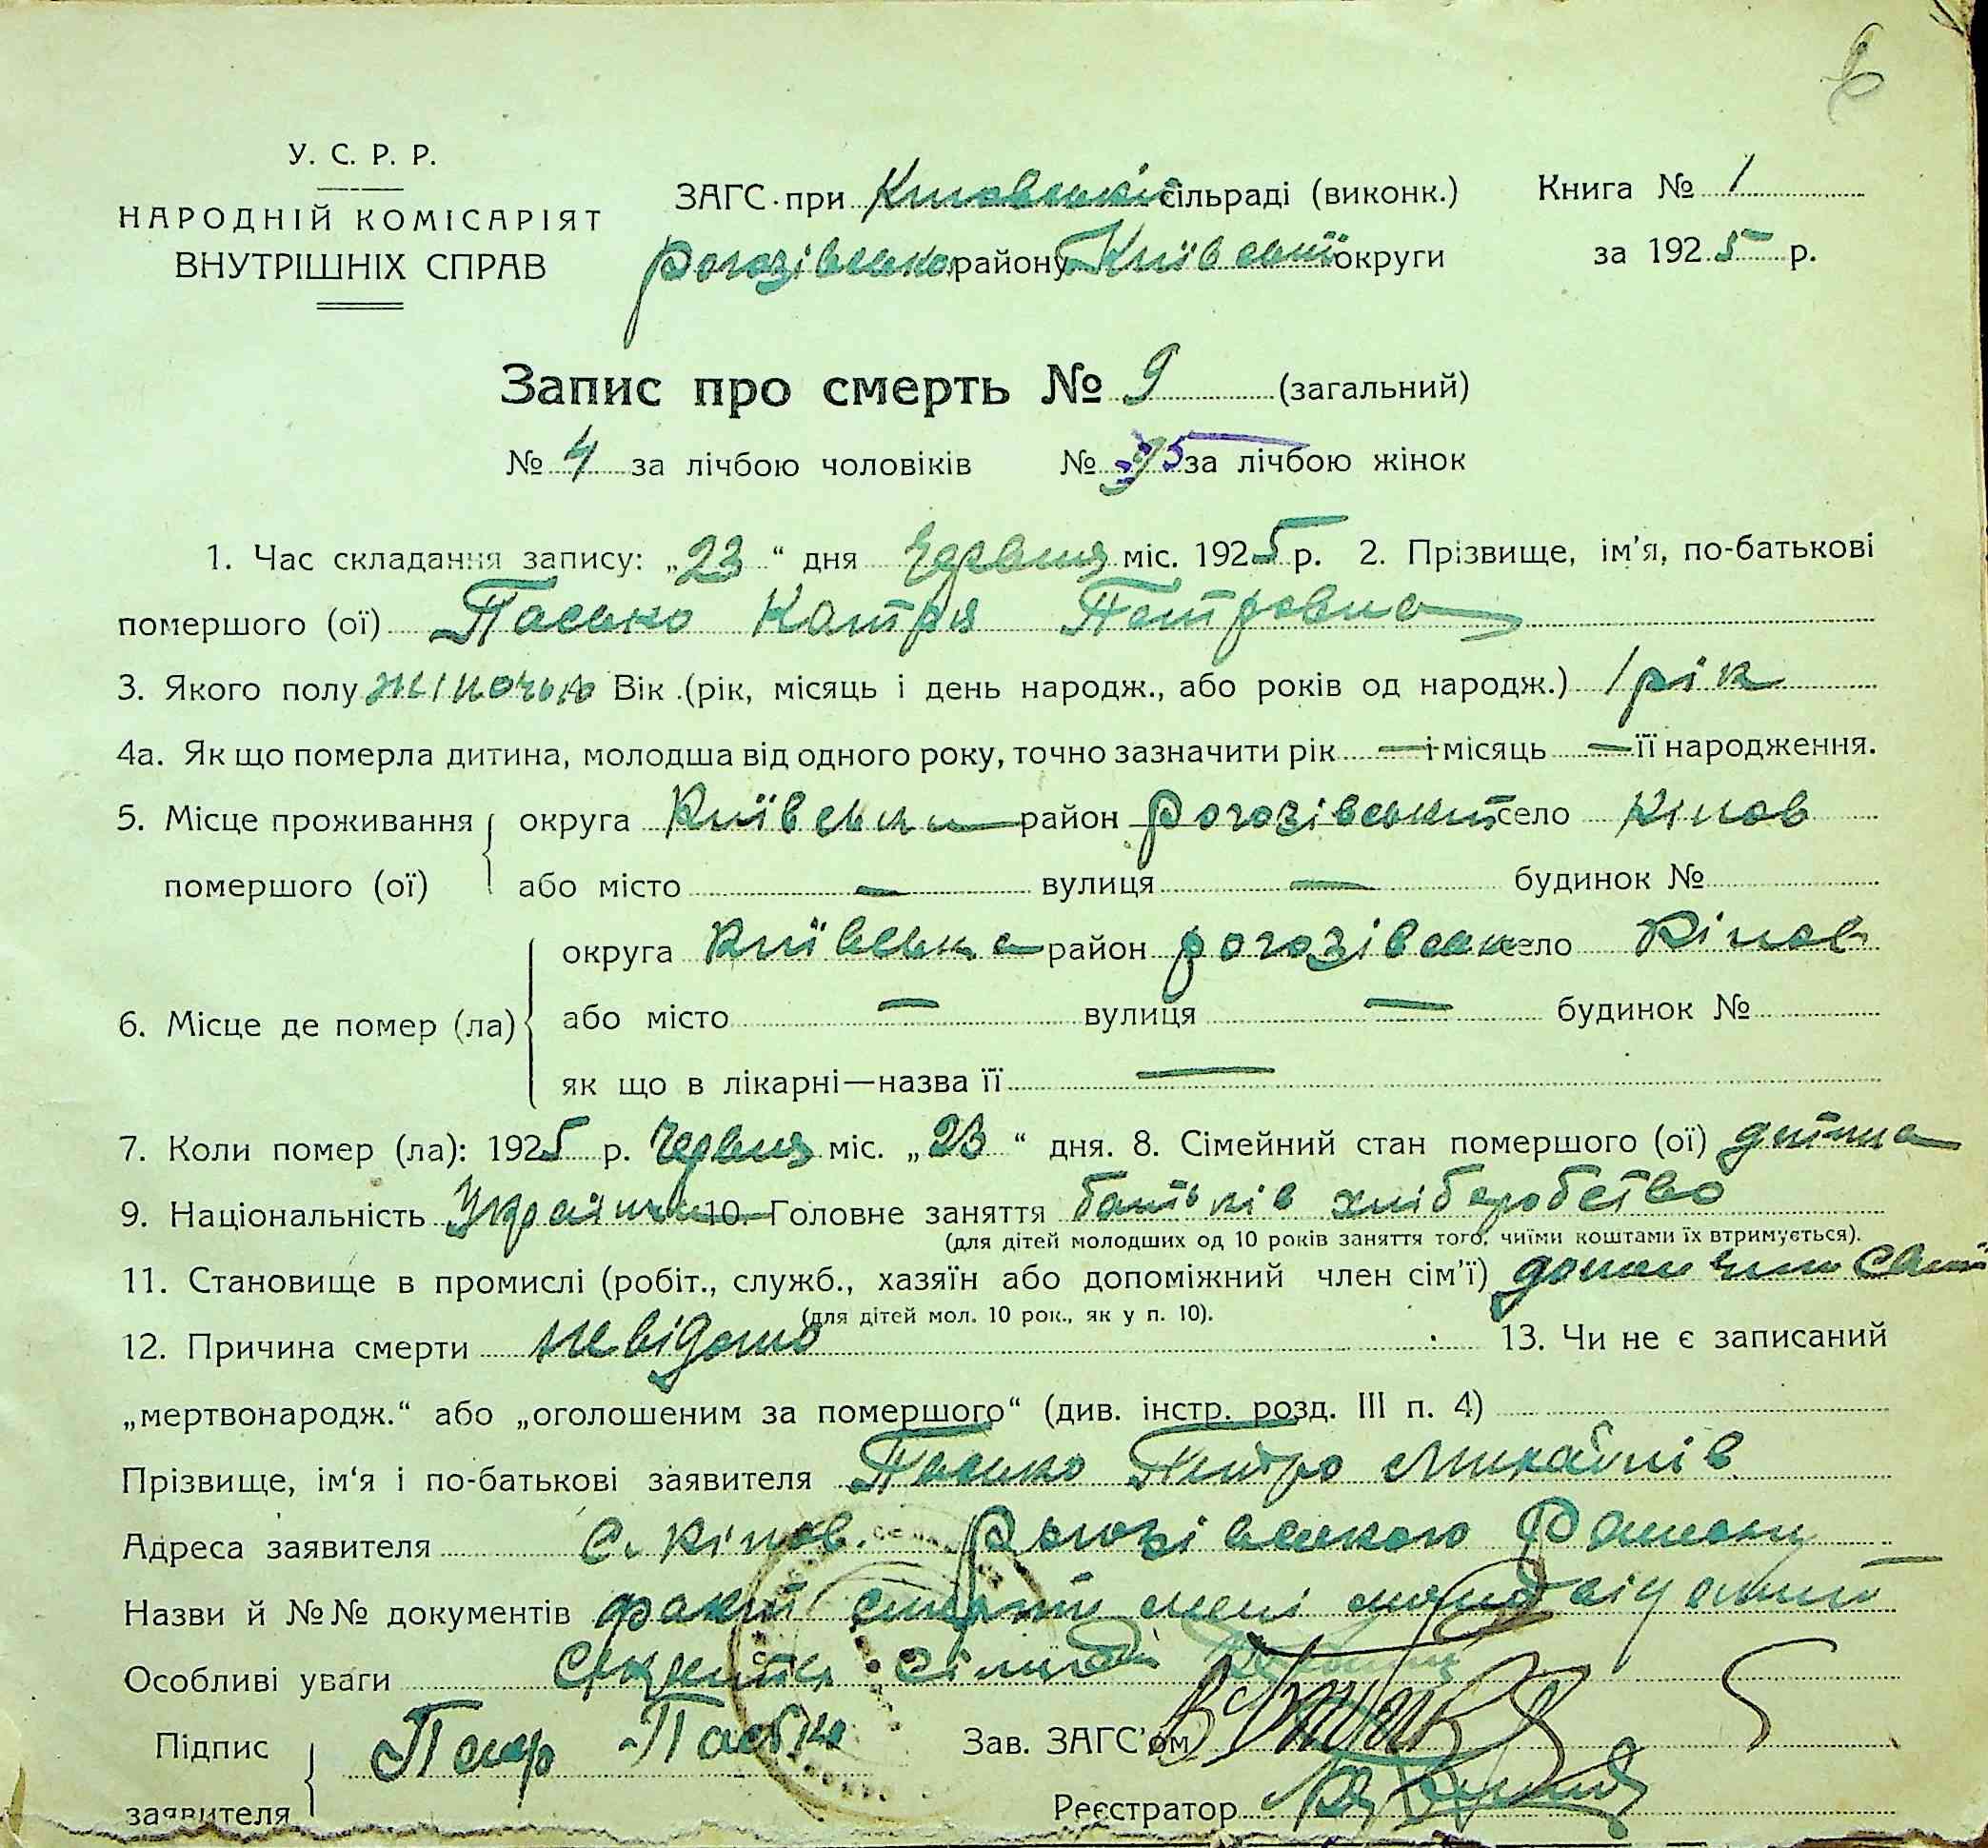 У. С. Р. Р.
НАРОДНІЙ КОМІСАРІЯТ
ВНУТРІШНІХ СПРАВ
ЗАГС при сільраді (виконк.)
Рогозівського району Київської округи
Книга № 1
за 1925 р.
Запис про смерть № 9 (загальний)
№ 4 за лічбою чоловіків № 5 за лічбою жінок
1. Час складання запису: „23“ дня Червня міс. 1925 р. 2. Прізвище, ім'я, по-батькові
помершого (ої) Пасько Катря Петровна
3. Якого полу жіночого Вік (рік, місяць і день народж., або років од народж.) 1 рік
4а. Як що померла дитина, молодша від одного року, точно зазначити рік — і місяць — її народження.
5. Місце проживання помершого (ої) округа Київська район Рогозівський село Кійов
або місто — вулиця — будинок №
6. Місце де помер (ла) округа Київська район Рогозівськ село Кійов
або місто — вулиця — будинок №
як що в лікарні—назва її —
7. Коли помер (ла): 1925 р. Червня міс. „23“ дня. 8. Сімейний стан помершого (ої) дитина
9. Національність Українка 10. Головне заняття батьків хліборобство
(для дітей молодших од 10 років заняття того, чиїми коштами їх втримується).
11. Становище в промислі (робіт., служб., хазяїн або допоміжний член сім'ї)
(для дітей мол. 10 рок., як у п. 10).
12. Причина смерти невідомо 13. Чи не є записаний
„мертвонародж.“ або „оголошеним за помершого“ (див. інстр. розд. III п. 4)
Прізвище, ім'я і по-батькові заявителя Пасько Петро Михайлів
Адреса заявителя с. Кійов. Рогозівського Району
Назви й №№ документів факт смерти мені
Особливі уваги
Підпис заявителя Петр Пасько
Зав. ЗАГС'ом
Реєстратор